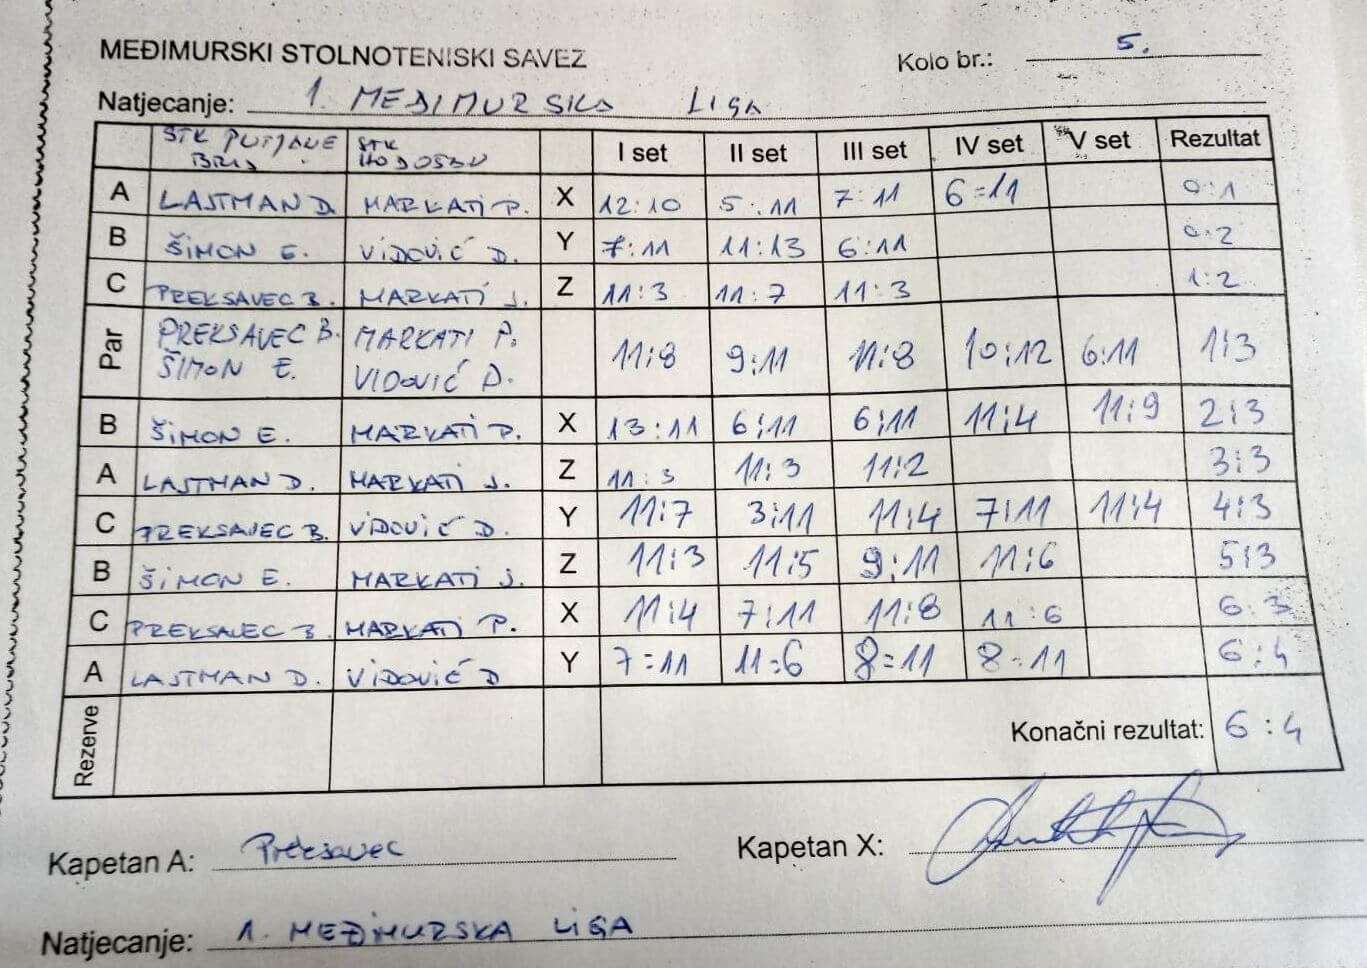 MEĐIMURSKI STOLNOTENISKI SAVEZ Kolo br.: 5.
Natjecanje: 1. MEĐIMURSKA LIGA
STK PUTJANE BRIJ STK HODOŠAN I set II set III set IV set V set Rezultat
A LASTMAN D. MARKATI P. X 12:10 5:11 7:11 6=11 0:1
B ŠIMON E. VIDOVIĆ D. Y 7:11 11:13 6:11 0:2
C PREKSAVEC B. MARKATI J. Z 11:3 11:7 11:3 1:2
Par PREKSAVEC B. MARKATI P. 11:8 9:11 11:8 10:12 6:11 1:3
ŠIMON E. VIDOVIĆ D.
B ŠIMON E. MARKATI P. X 13:11 6:11 6:11 11:4 11:9 2:3
A LASTMAN D. MARKATI J. Z 11:3 11:3 11:2 3:3
C PREKSAVEC B. VIDOVIĆ D. Y 11:7 3:11 11:4 7:11 11:4 4:3
B ŠIMON E. MARKATI J. Z 11:3 11:5 9:11 11:6 5:3
C PREKSAVEC B. MARKATI P. X 11:4 7:11 11:8 11:6 6:3
A LASTMAN D. VIDOVIĆ D Y 7=11 11=6 8=11 8-11 6:4
Rezerve Konačni rezultat: 6:4
Kapetan A: Preksavec Kapetan X:
Natjecanje: 1. MEĐIMURSKA LIGA